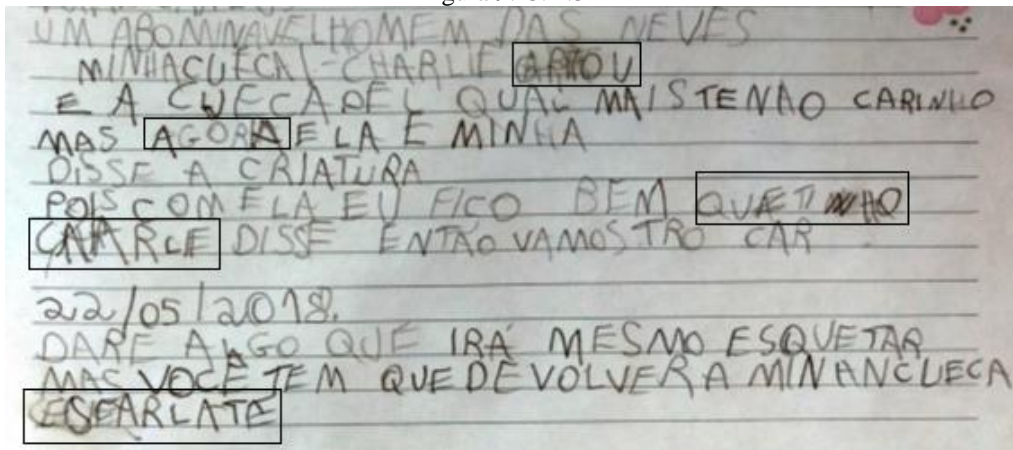 UM ABOMINAVELHOMEM DAS NEVES
MINHACUECA!-CHARLIE GRITOU
E A CUECAPEL QUAL MAISTENHO CARINHO
MAS AGORA ELA E MINHA
DISSE A CRIATURA
POIS COM ELA EU FICO BEM QUETINHO
CAARLE DISSE ENTÃO VAMOS TRO CAR
22/05/2018.
DARE ALGO QUE IRÁ MESMO ESQUETAR
MAS VOCÊ TEM QUE DEVOLVER A MINHANCUECA
ESCARLATE